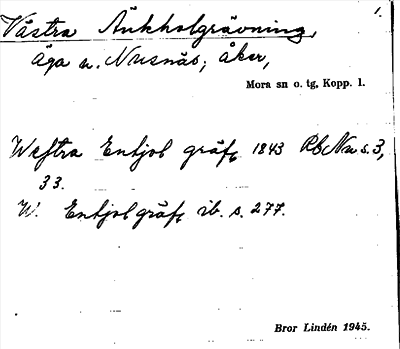 1.
Västra Änkholgrävning,
Äga u. Nusnäs; åker,
Mora sn o. tg, Kopp. l.
Westra Enkjol gräfn 1843 RbNu s. 3,
33.
W. Enkjol gräfn ib. s. 277.
Bror Lindén 1945.